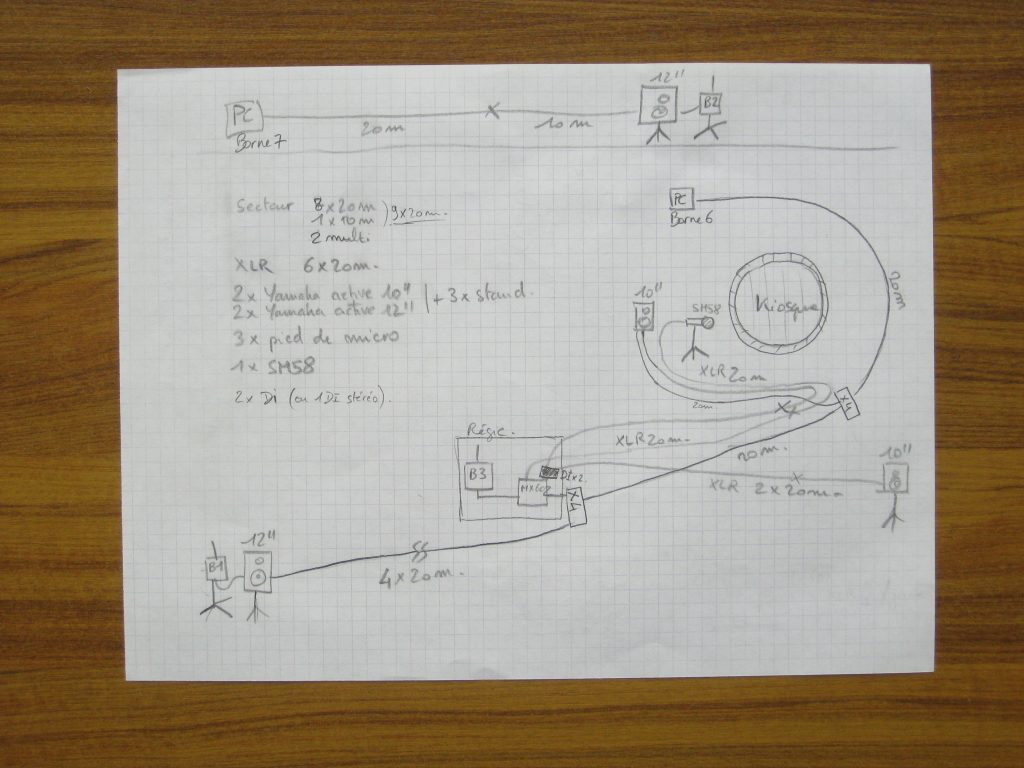 12"
PC
B2
20m
10m
Borne 7
Secteur 8x20m
1x10m
9x20m.
2 multi
XLR 6x20m.
2x Yamaha active 10"
2x Yamaha active 12"
+ 3x stand.
3x pied de micro
1x SM58
2x Di (ou 1DI stéréo).
PC
Borne 6
20m
10"
SM58
Kiosque
XLR 20m
20m
x4
Régie.
XLR 20m.
20m.
10"
B3
DIx2.
MX602
x4
XLR 2x20m.
12"
B1
4x20m.